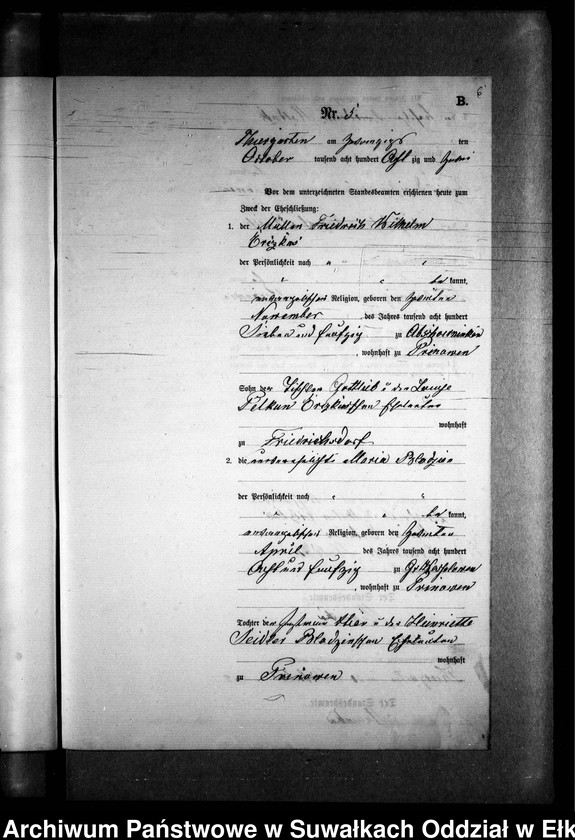 6
B.
Nr. 5
Thiergarten am zwanzigs ten
October tausend acht hundert Acht zig und zwei
Vor dem unterzeichneten Standesbeamten erschienen heute zum
Zweck der Eheschließung:
1. der Müller Friedrich Wilhelm
der Persönlichkeit nach
be kannt,
evangelischer Religion, geboren den zweiten
November des Jahres tausend acht hundert
Sieben und fünfzig zu
, wohnhaft zu Prinowen
Sohn der Tischler Gottlieb u der Louise
Eheleuten
wohnhaft
zu Friedrichsdorf
2. die unverehelichte Maria
der Persönlichkeit nach
be kannt,
evangelischer Religion, geboren den zweiten
April des Jahres tausend acht hundert
Acht und fünfzig zu
, wohnhaft zu Prinowen
Tochter der u der Heinriette
Seidler Eheleuten
wohnhaft
zu Prinowen
Archiwum Państwowe w Suwałkach Oddział w Ełk